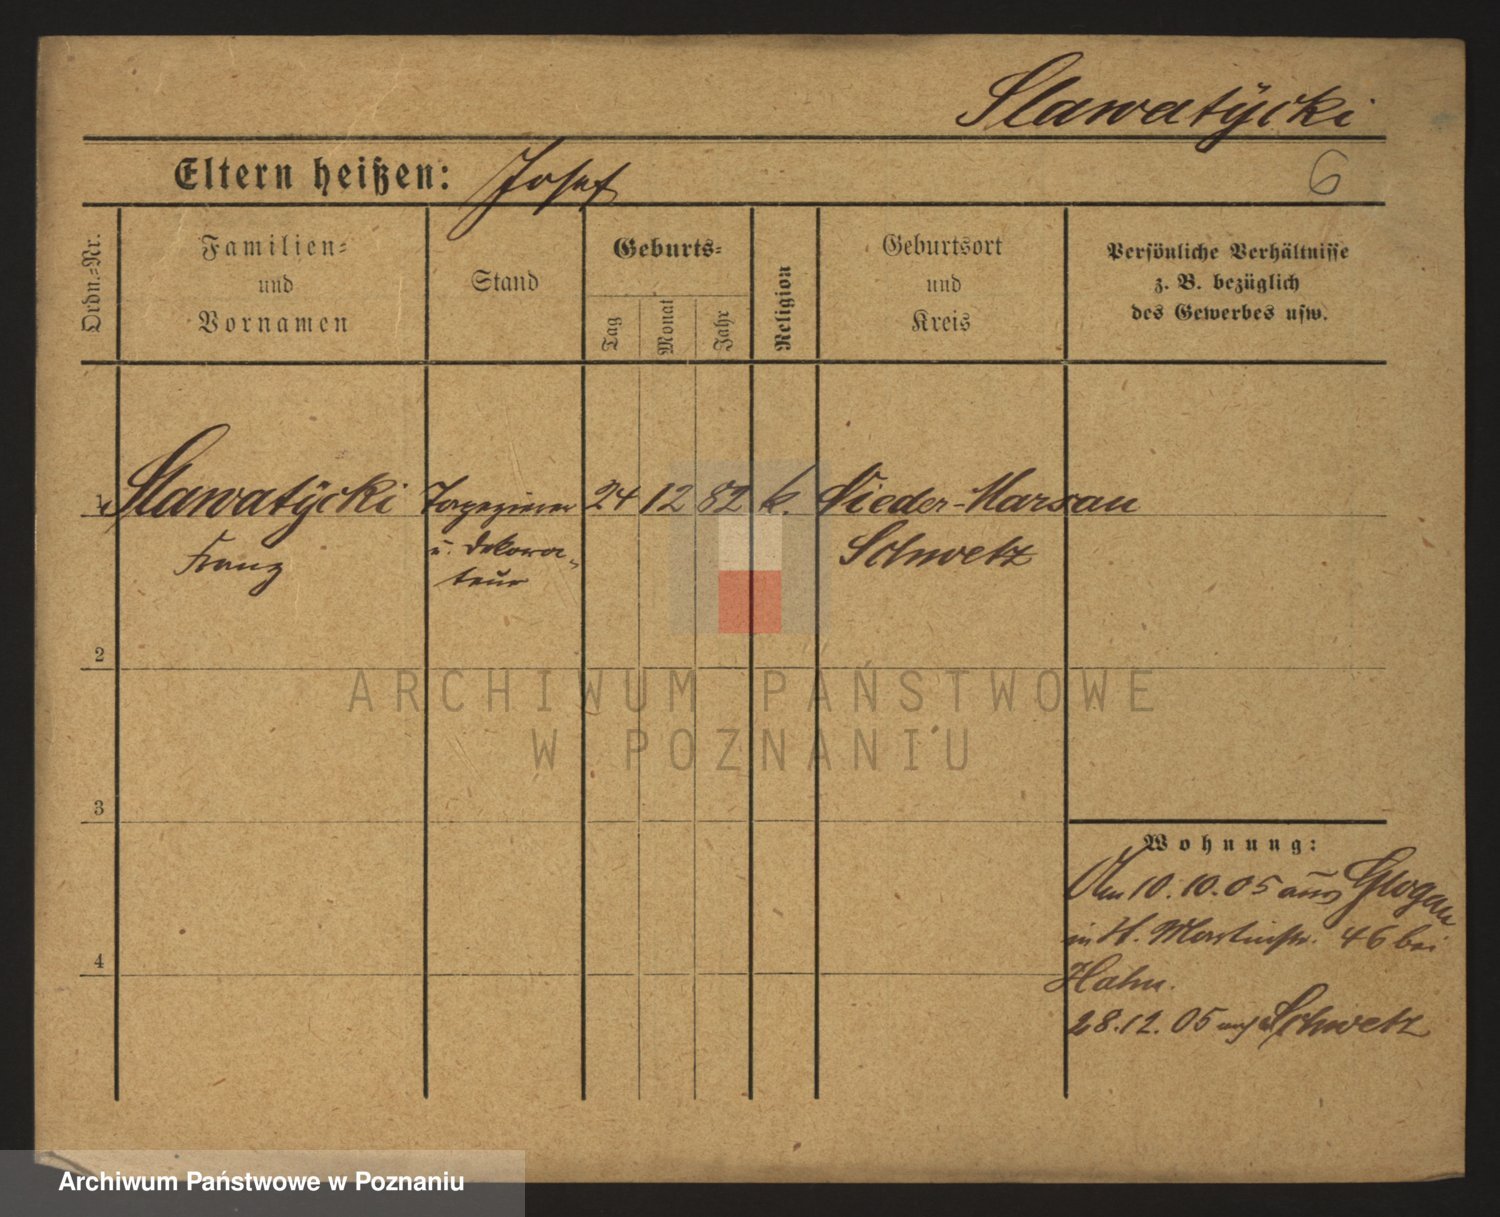 Slawatÿcki
Eltern heißen: Josef
6
Ordn.-Nr.
Familien-
und
Vornamen
Stand
Geburts-
Tag
Monat
Jahr
Religion
Geburtsort
und
Kreis
Persönliche Verhältnisse
z. B. bezüglich
des Gewerbes usw.
1 Slawatÿcki Tapezierer 24 12 82 k. Nieder-Marsau
Franz u. Dekora- Schwetz
teur
2
3
4
Wohnung:
Am 10.10.05 aus Glogau
in H. Martinstr. 46 bei
Hahn.
28.12.05 nach Schwetz
ARCHIWUM PAŃSTWOWE
W POZNANIU
Archiwum Państwowe w Poznaniu